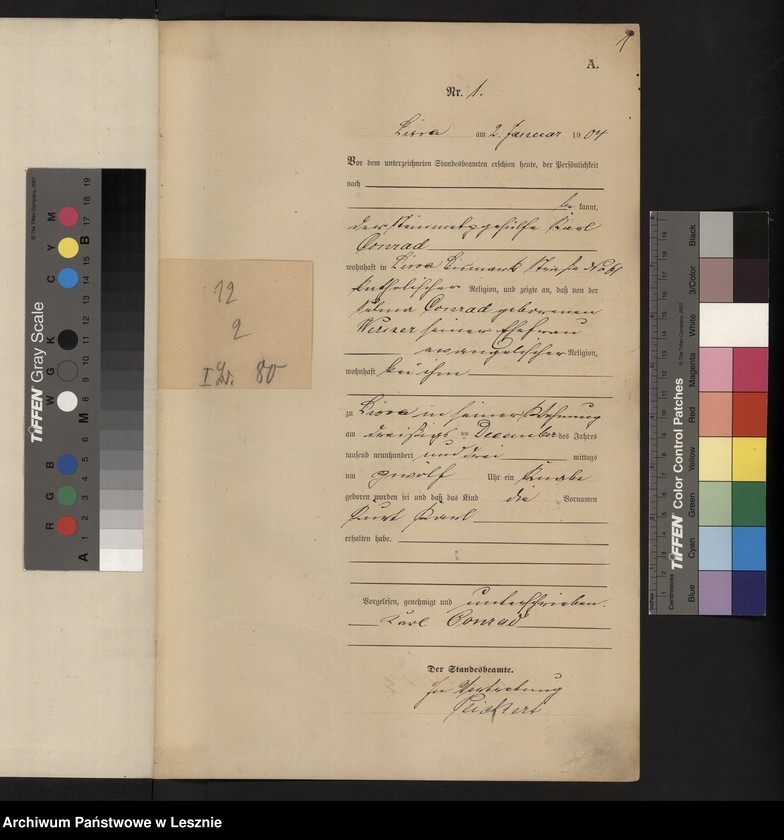 A.
Nr. 1.
Lissa am 2. Januar 1904
Vor dem unterzeichneten Standesbeamten erschien heute, der Persönlichkeit
nach
be kannt,
der Steinmetzgehilfe Karl
Conrad
wohnhaft in Lissa Bismarck Straße No
katholischer Religion, und zeigte an, daß von der
Selma Conrad geborenen
Werner seiner Ehefrau
evangelischer Religion,
wohnhaft bei ihm
zu Lissa in seiner Wohnung
am dreißigsten December des Jahres
tausend neunhundert und drei mittags
um zwölf Uhr ein Knabe
geboren worden sei und daß das Kind die Vornamen
Kurt Karl
erhalten habe.
Vorgelesen, genehmigt und unterschrieben.
Karl Conrad
Der Standesbeamte.
In Vertretung
12
2
80
TIFFEN Gray Scale
© The Tiffen Company, 2007
R G B W G K C Y M
A 1 2 3 4 5 6 M 8 9 10 11 12 13 14 15 B 17 18 19
TIFFEN Color Control Patches
© The Tiffen Company, 2007
Inches
Centimetres
Blue Cyan Green Yellow Red Magenta White 3/Color Black
Archiwum Państwowe w Lesznie